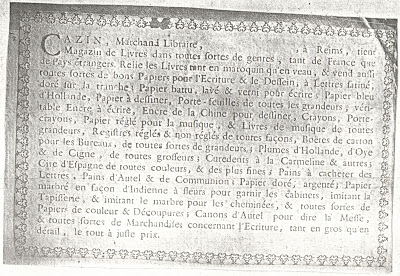 CAZIN, Marchand Libraire, , à Reims, tient
Magasin de Livres dans toutes sortes de genres, tant de France que
de Pays étrangers. Relie les Livres tant en maroquin qu'en veau, & vend aussi
toutes sortes de bons Papiers pour l'Ecriture & le Dessein, à Lettres satiné,
doré sur la tranche; Papier battu, lavé & verni pour écrire; Papier bleu
d'Hollande, Papier à dessiner, Porte-feuilles de toutes les grandeurs; véri-
table Encre à écrire, Encre de la Chine pour dessiner, Crayons, Porte-
crayons, Papier réglé pour la musique, & Livres de musique de toutes
grandeurs, Registres réglés & non réglés de toutes façons, Boëtes de carton
pour les Bureaux, de toutes sortes de grandeurs; Plumes d'Hollande, d'Oye
& de Cigne, de toutes grosseurs; Curedents à la Carmeline & autres;
Cire d'Espagne de toutes couleurs, & des plus fines; Pains à cacheter des
Lettres, Pains d'Autel & de Communion; Papier doré, argenté; Papier
marbré en façon d'Indienne à fleurs pour garnir les cabinets, imitant la
Tapisserie, & imitant le marbre pour les cheminées, & toutes sortes de
Papiers de couleur & Découpures; Canons d'Autel pour dire la Messe,
& toutes sortes de Marchandises concernant l'Ecriture, tant en gros qu'en
détail, le tout à juste prix.